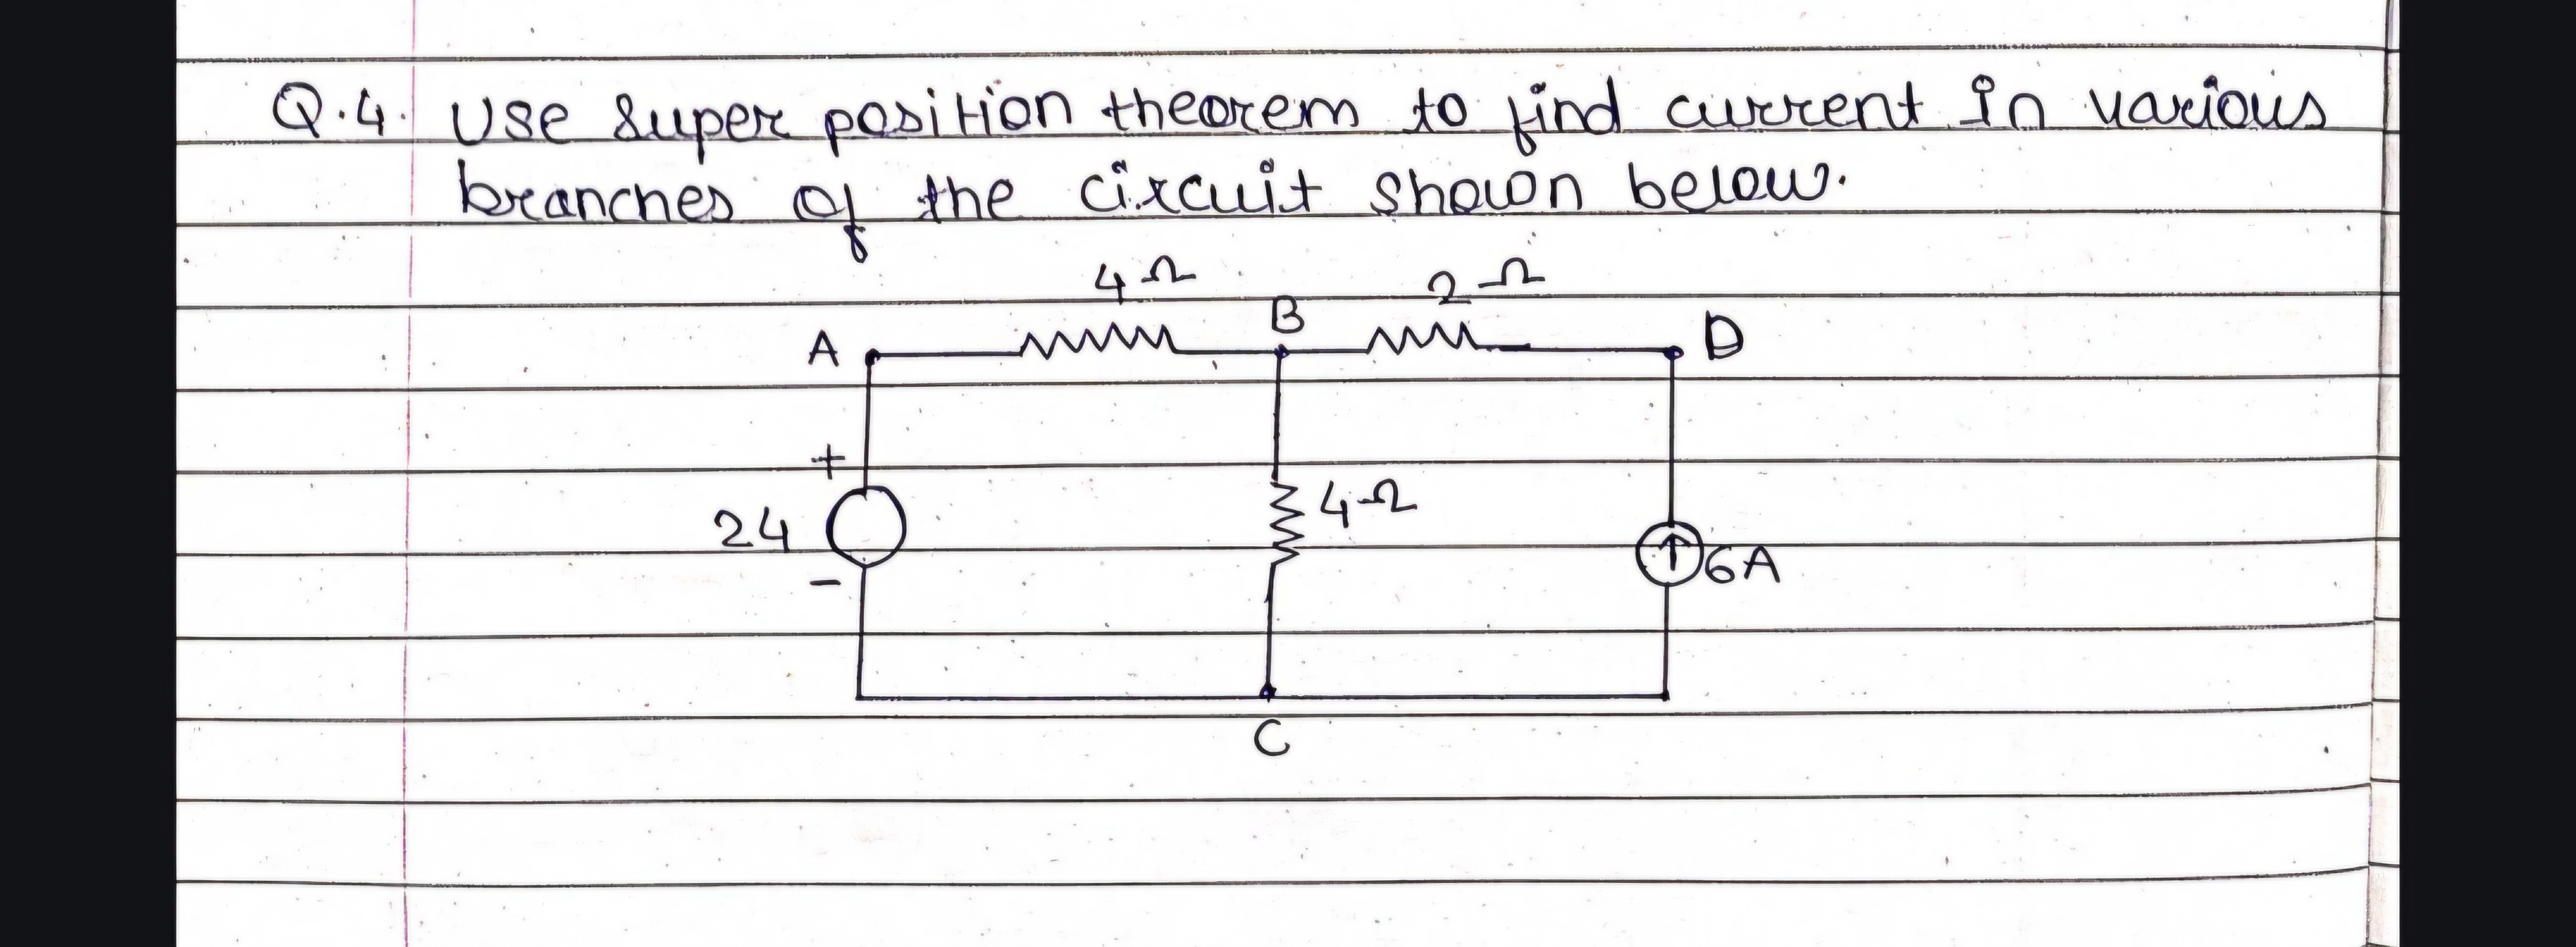 Q.4. Use super position theorem to find current in various
branches of the circuit shown below.
4Ω 2Ω
A B D
+
24 4Ω 6A
-
C